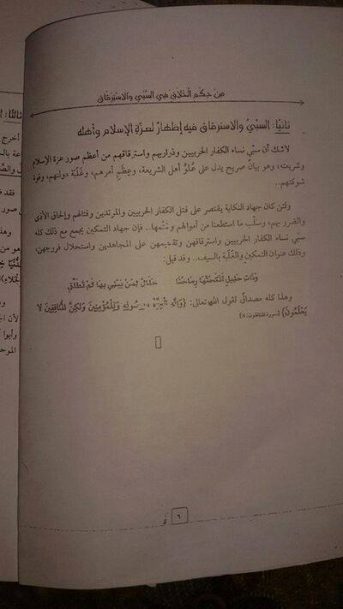 من حكم الخلاق في السبي والاسترقاق
ثانيًا: السبيُ والاسترقاق فيه إظهارٌ لعزّة الإسلام وأهله
لاشك أن سبي نساء الكفار الحربيين وذراريهم واسترقاقهم من أعظم صور عزة الإسلام
وشريعته، وهو بيانٌ صريح يدل على علُوّ أهل الشريعة، وعِظَمِ أمرهم، وغَلَبَة دولتهم، وقوة
شوكتهم..
ولئن كان جهاد النكاية يقتصر على قتل الكفار الحربيين والمرتدين وقتالهم وإلحاق الأذى
والضرر بهم، وسلب ما استطعنا من أموالهم ومتعهم.. فإن جهاد التمكين يجمع مع ذلك كله
سبي نساء الكفار الحربيين واسترقاقهن وتقسيمهن على المجاهدين واستحلال فروجهن،
وذلك عنوان التمكين والغَلَبة بالسيف.. وقد قيل:
وذات حليلٍ أنكحتها رماحنا حلالٌ لمن يبني بها لم تُطلَّقِ
وهذا كله مصداقٌ لقول الله تعالى: {وَلِلَّهِ الْعِزَّةُ وَلِرَسُولِهِ وَلِلْمُؤْمِنِينَ وَلَكِنَّ الْمُنَافِقِينَ لَا
يَعْلَمُونَ}
٦